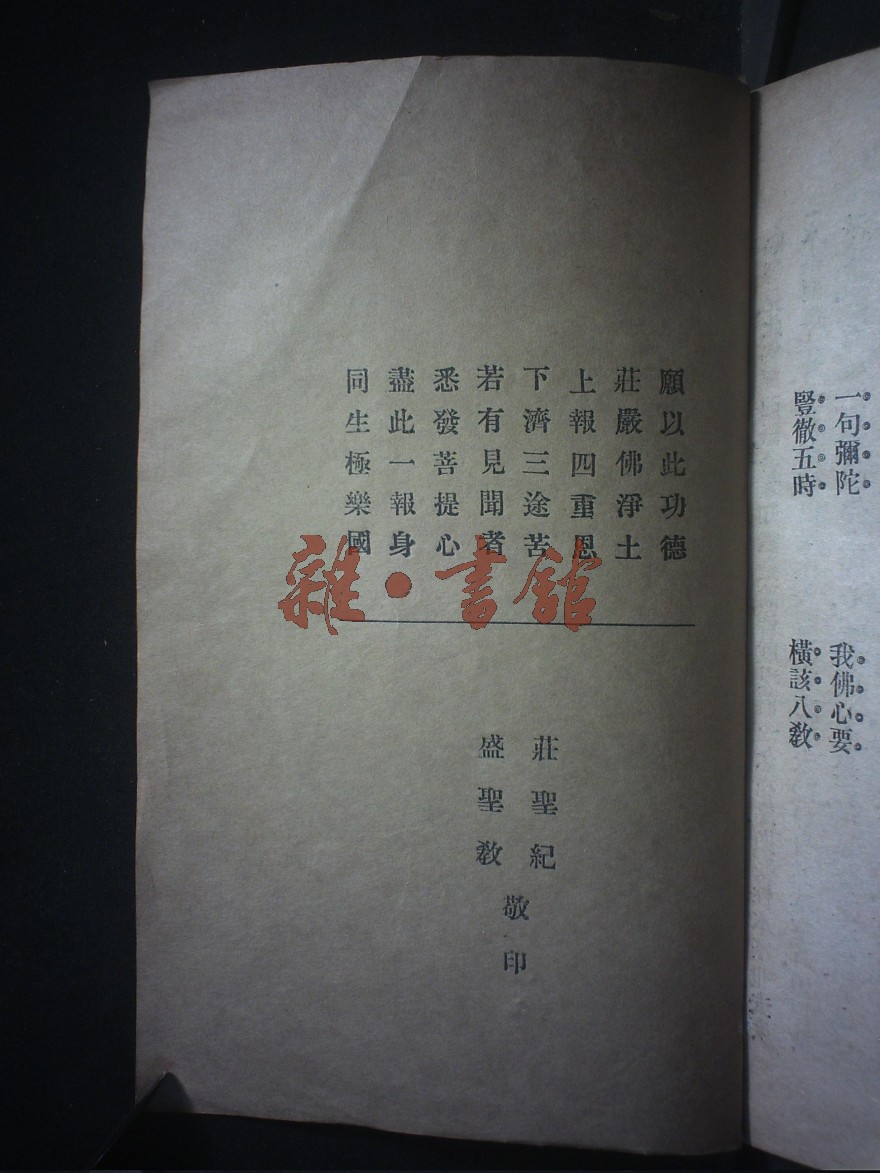 一句彌陀　我佛心要
豎徹五時　橫該八教
願以此功德
莊嚴佛淨土
上報四重恩
下濟三途苦
若有見聞者
悉發菩提心
盡此一報身
同生極樂國
莊聖紀
盛聖教
敬印
雜·書館